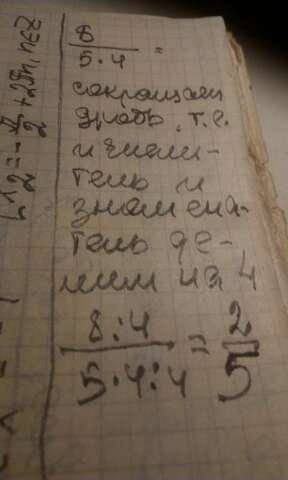 8/(5·4) =
сокращаем
дробь, т.е.
и числи-
тель и
знамена-
тель де-
лим на 4
(8:4)/(5·4:4) = 2/5